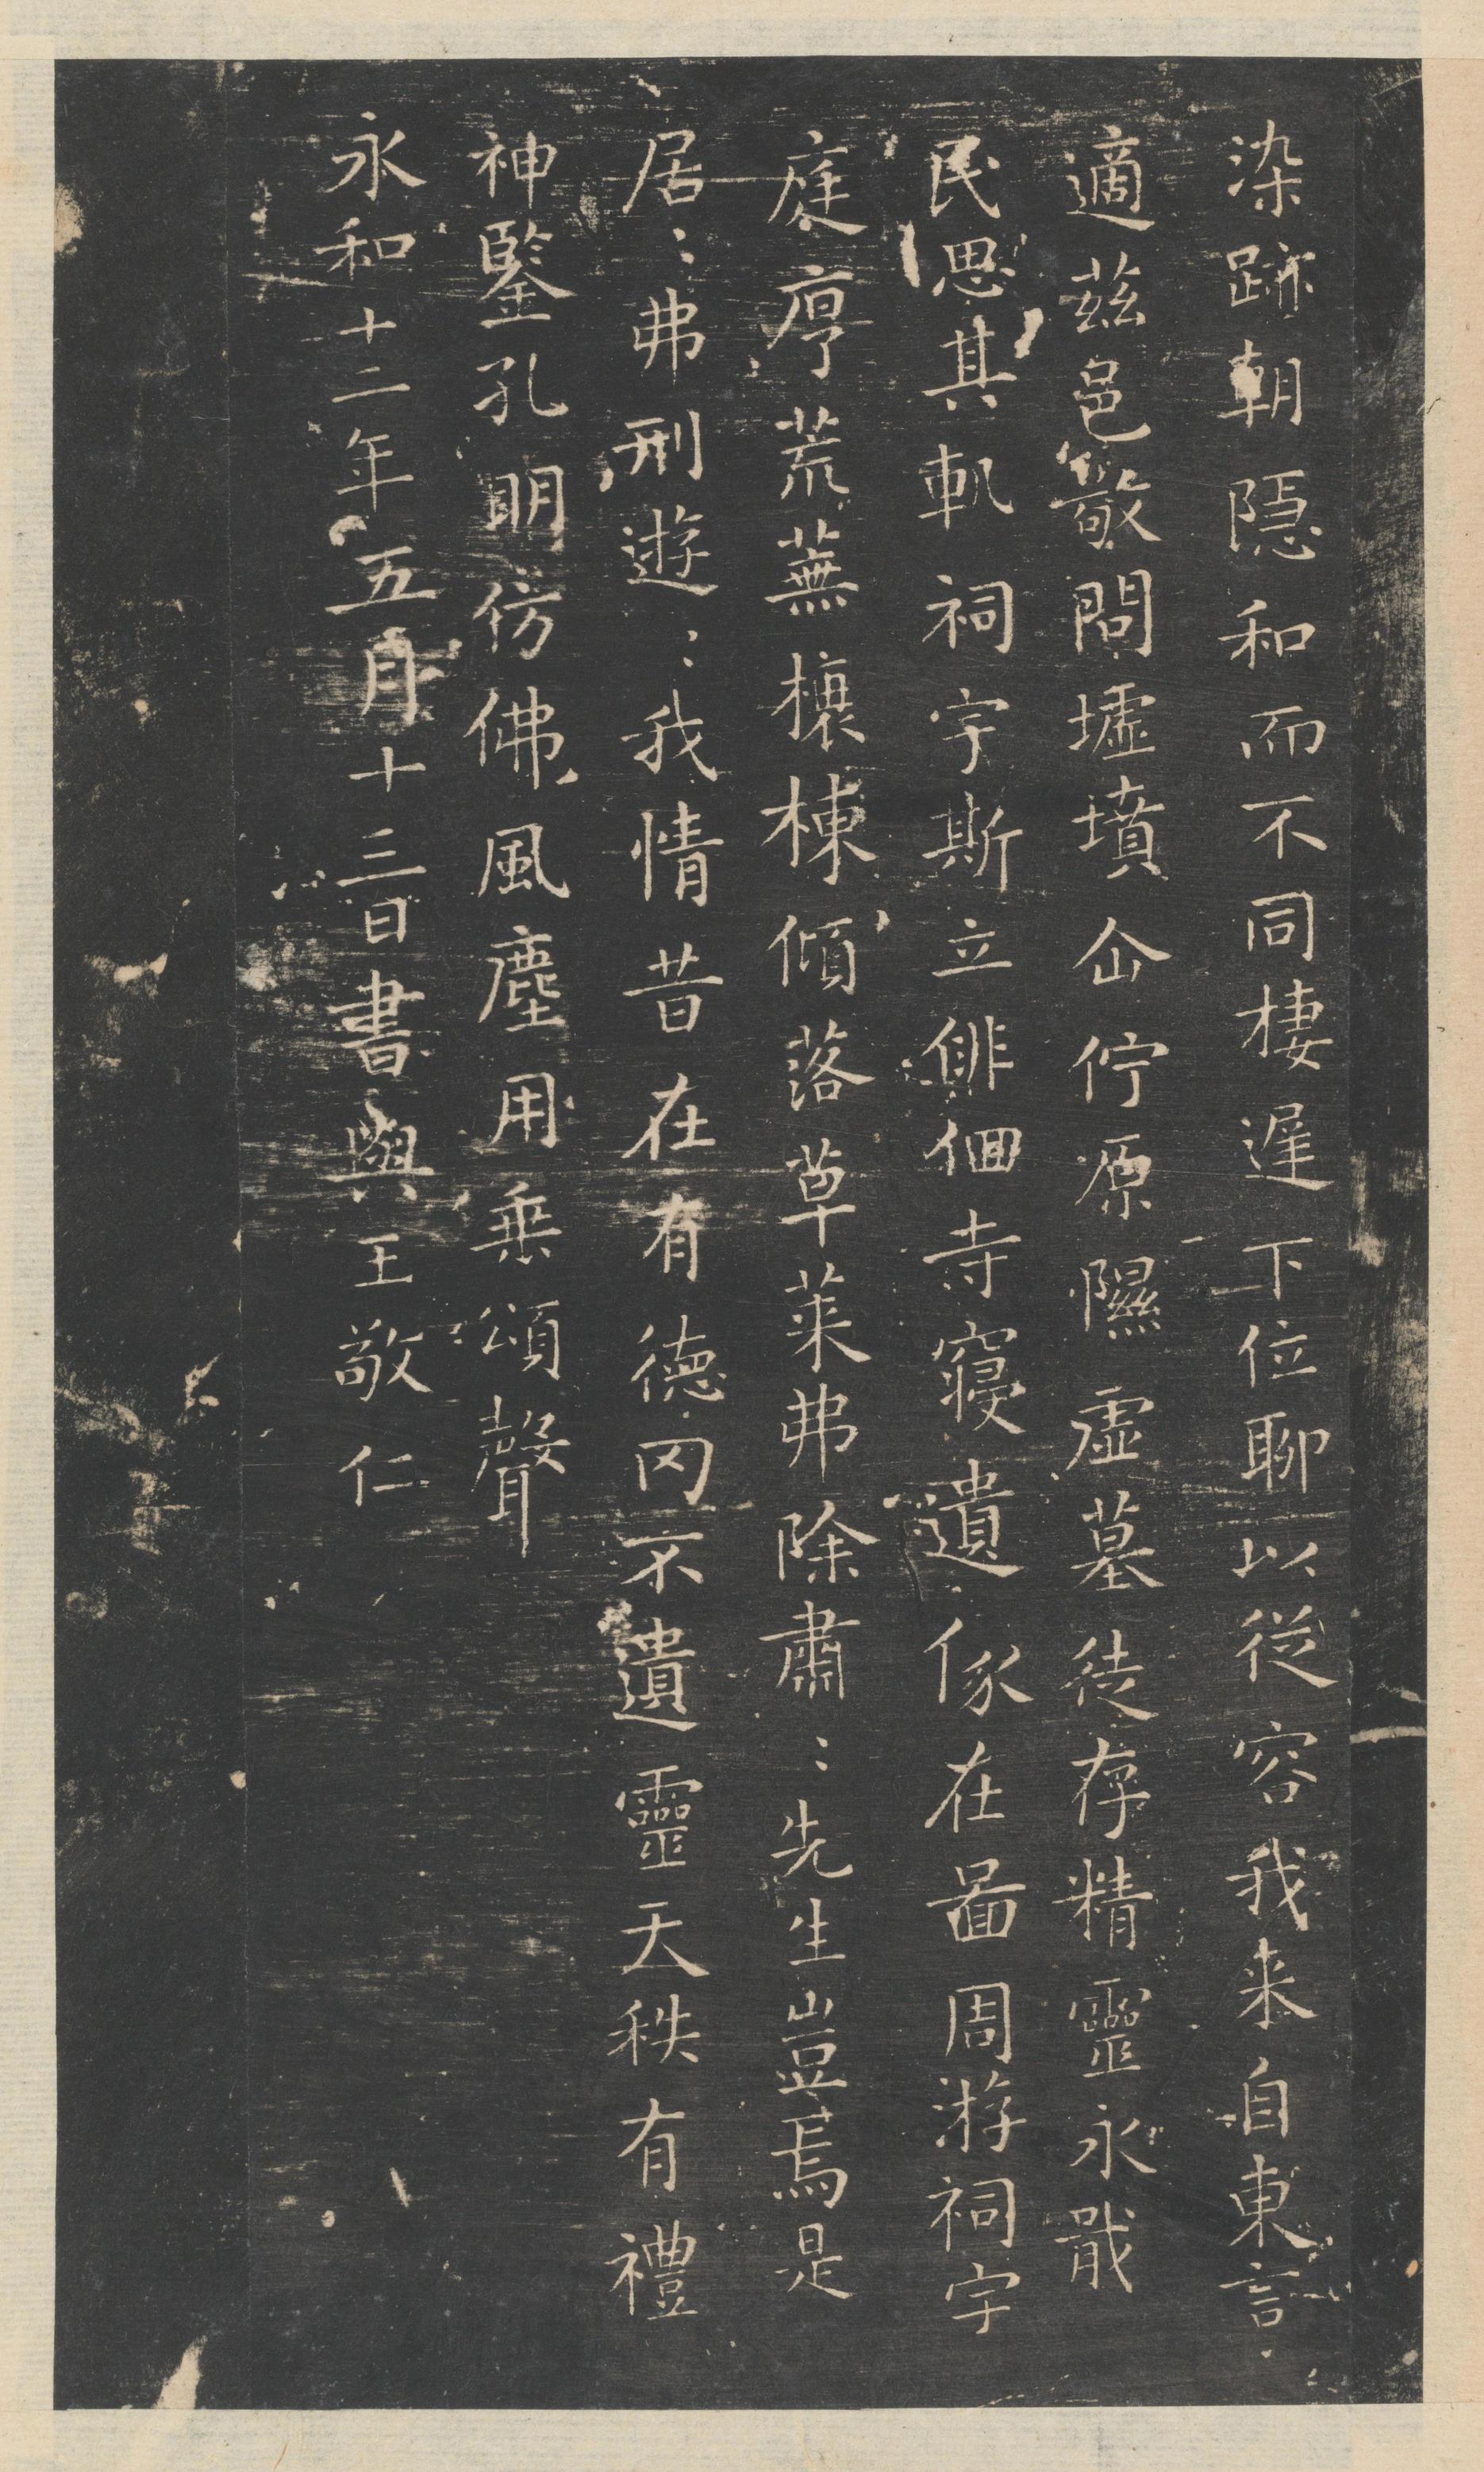 染跡朝隱和而不同棲遲下位聊以從容我來自東言
適茲邑敬問墟墳企佇原隰虛墓徒存精靈永戢
民思其軌祠宇斯立徘佪寺寢遺像在啚周游祠宇
庭序荒蕪榱棟傾落草萊弗除肅〻先生豈焉是
居〻弗刑遊〻我情昔在有德罔不遺靈天秩有禮
神鑒孔明仿佛風塵用垂頌聲
永和十二年五月十三日書與王敬仁